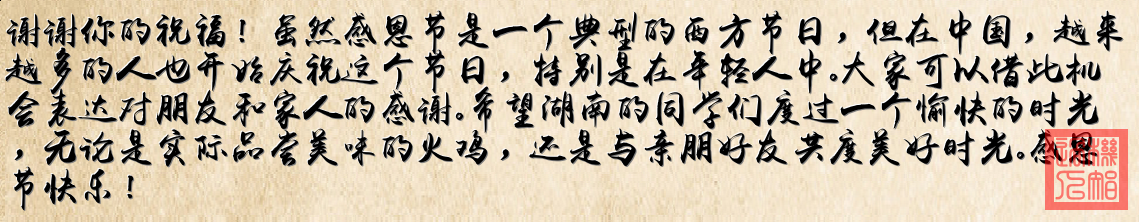 谢谢你的祝福！虽然感恩节是一个典型的西方节日，但在中国，越来
越多的人也开始庆祝这个节日，特别是在年轻人中。大家可以借此机
会表达对朋友和家人的感谢。希望湖南的同学们度过一个愉快的时光
，无论是实际品尝美味的火鸡，还是与亲朋好友共度美好时光。感恩
节快乐！